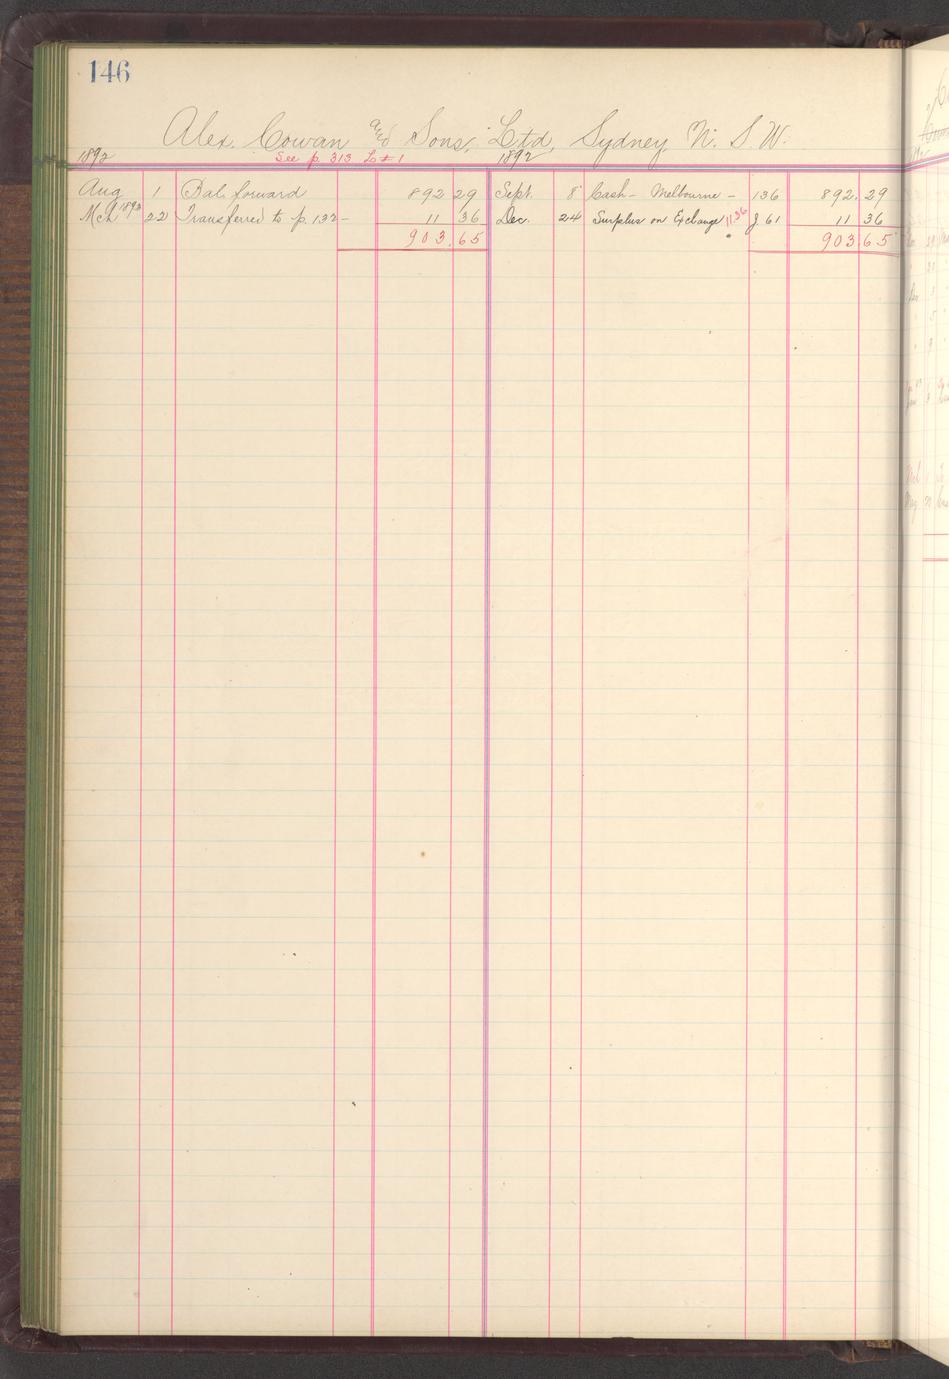 146
Alex. Cowan and Sons, Ltd, Sydney N. S. W.
See p. 313 L#1
1892 1892
Aug 1 Bal. forward 892 29 Sept. 8 Cash - Melbourne - 136 892. 29
Mch 1893 22 Transferred to p. 132 - 11 36 Dec. 24 Surplus on Exchange 1136 J 61 11 36
903.65 903.65